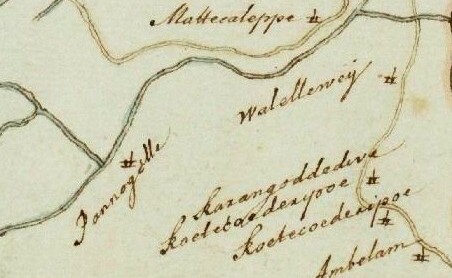 Mattecaleppe
Walelleweij
Pannogalle
Karangoddedeva
Koetecoederipoe
Koetecoederipoe
Ambelam